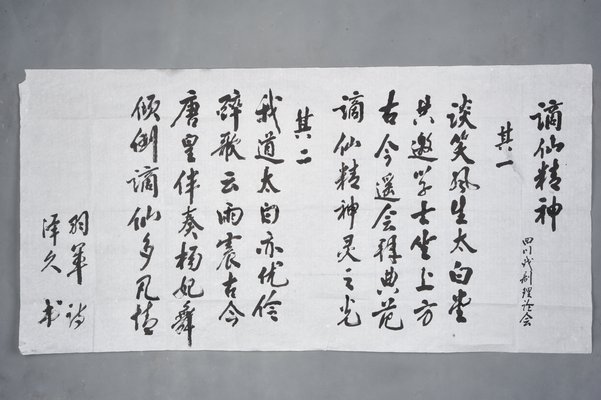 谪仙精神
四川戏剧理论会
其一
谈笑风生太白堂
共邀学士坐上方
古今遥会典范
谪仙精神灵之光
其二
我道太白亦优伶
醉歌云雨震古今
唐皇伴奏杨妃舞
倾倒谪仙多风情
羽军 诗
泽久 书